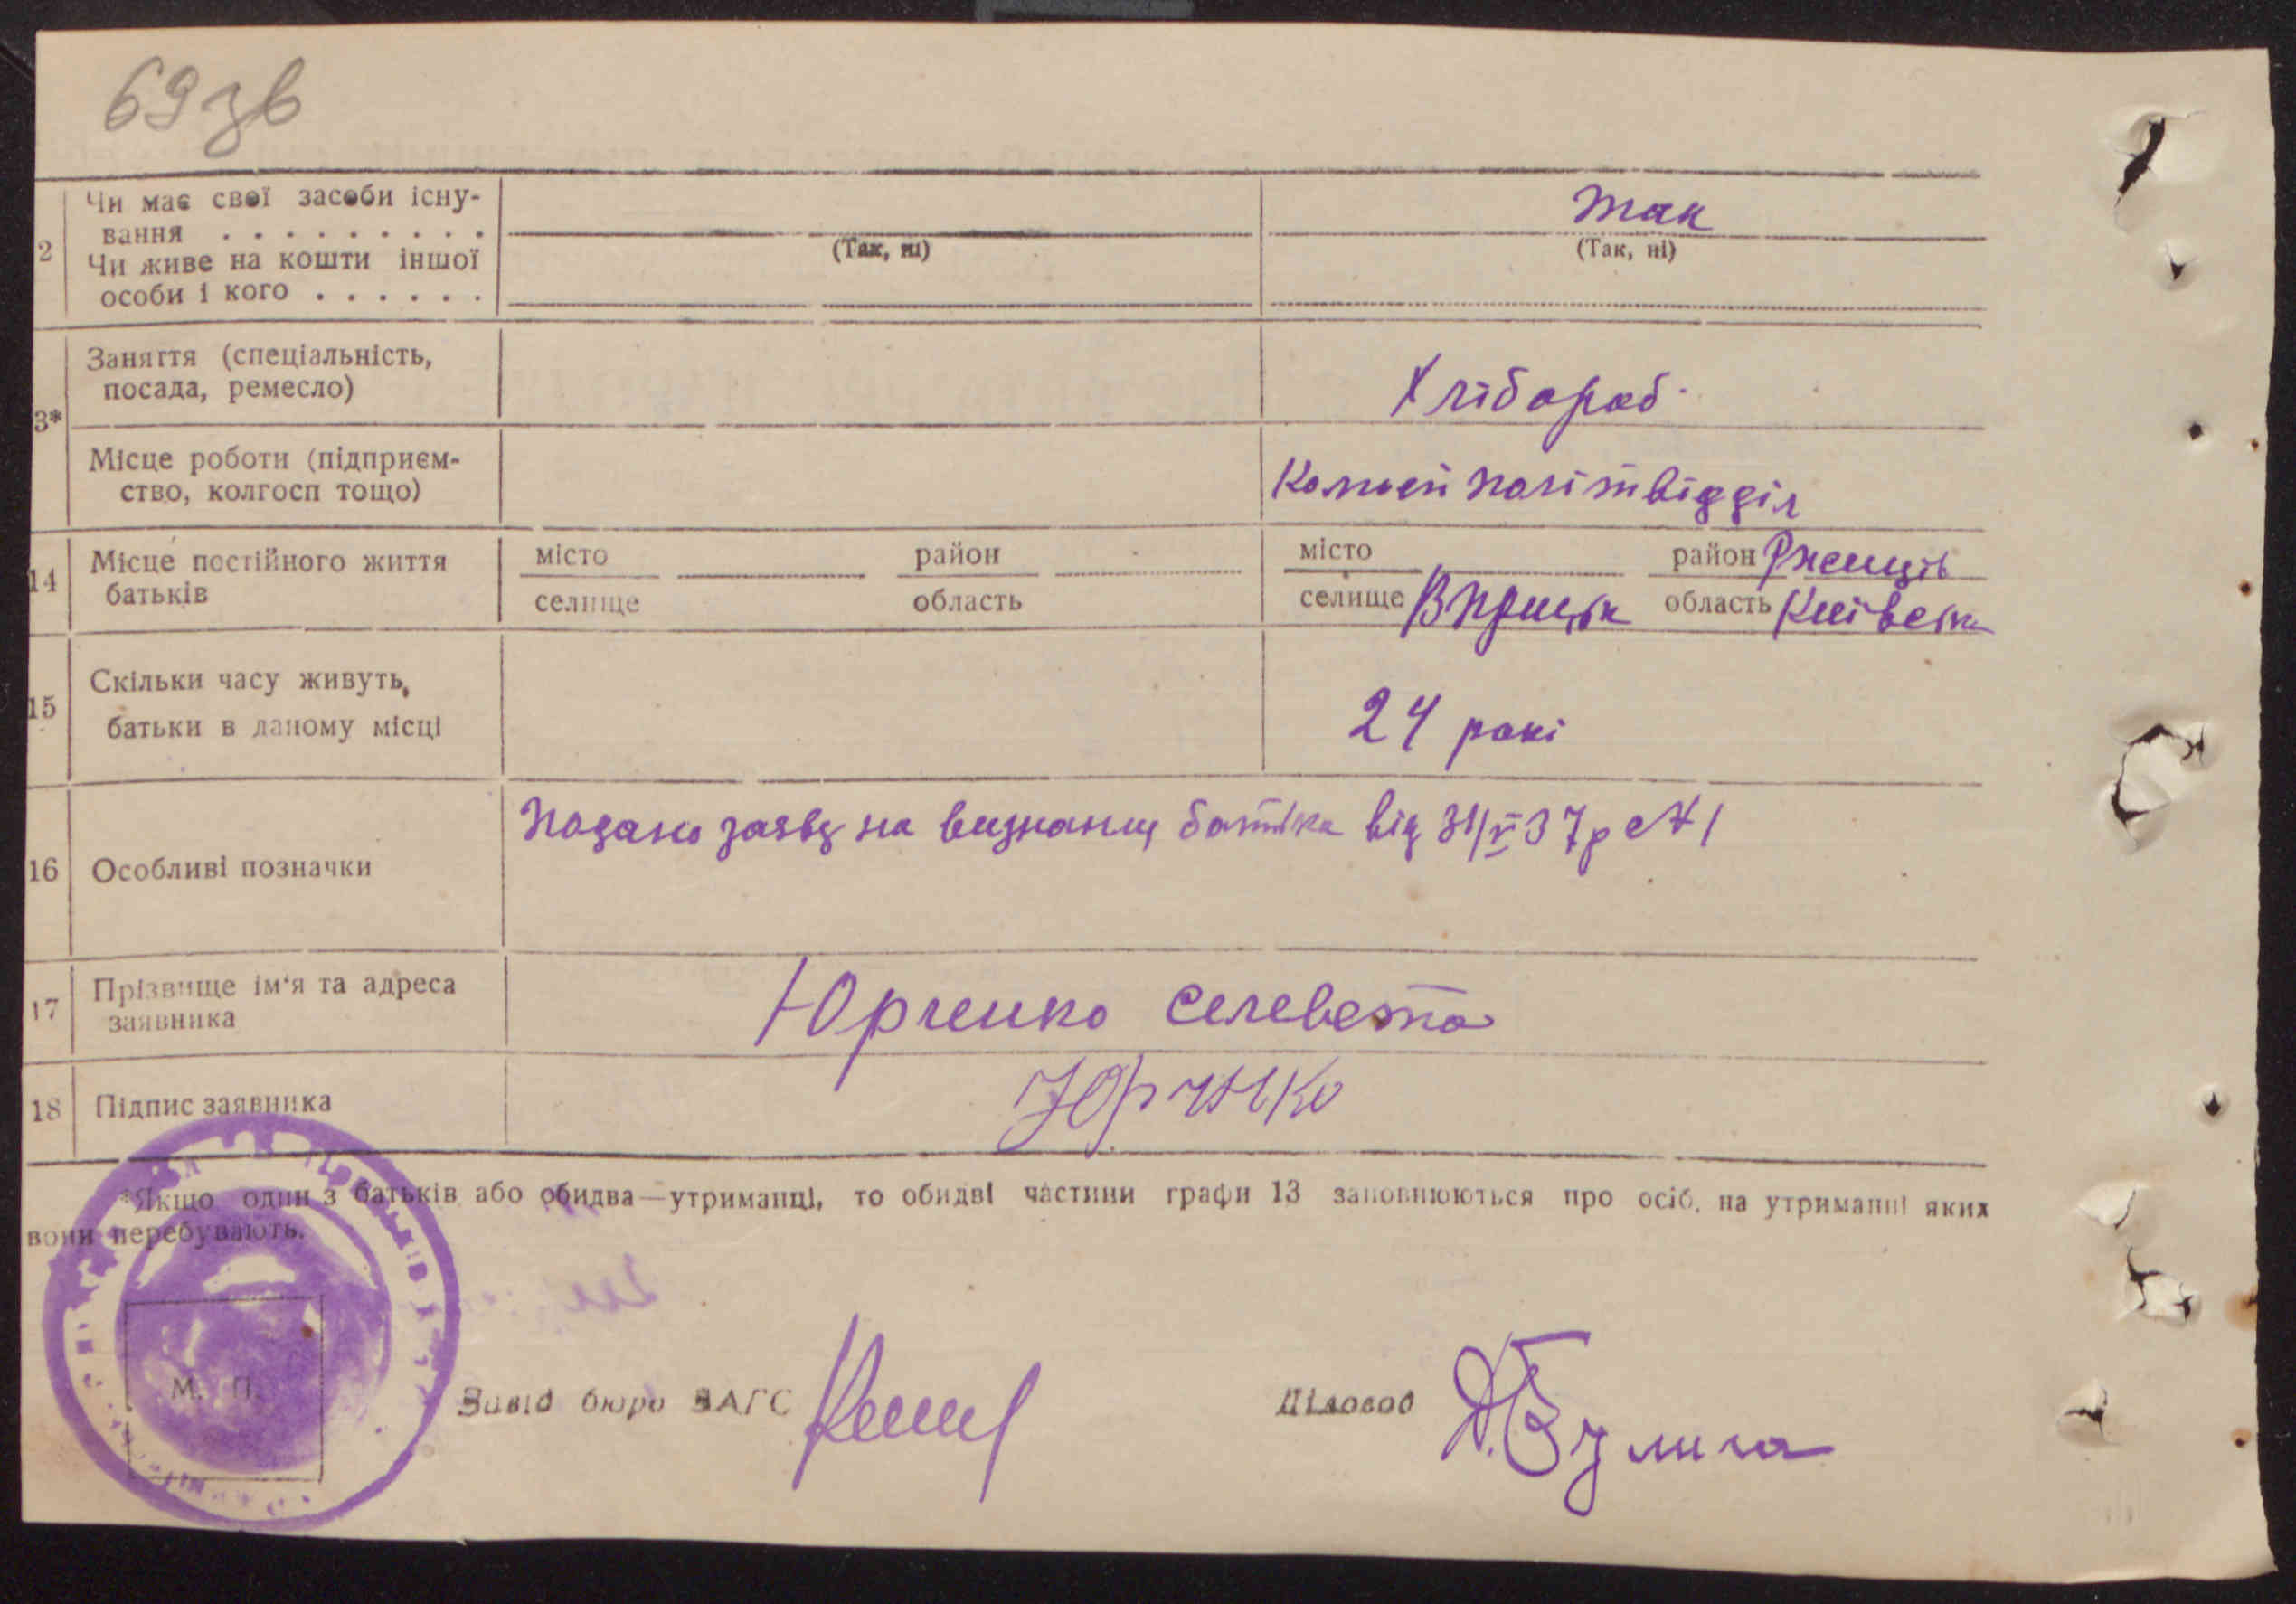 69зв
2 Чи має свої засоби існу-
вання . . . . . . . . . . Так
(Так, ні) (Так, ні)
Чи живе на кошти іншої
особи і кого . . . . . .
3* Заняття (спеціальність,
посада, ремесло) Хлібороб
Місце роботи (підприєм-
ство, колгосп тощо) політвідділ
14 Місце постійного життя
батьків
місто район місто район Ржищів
селище область селище область Київськ
15 Скільки часу живуть,
батьки в даному місці 24 рокі
16 Особливі позначки Подано заяву на визнання батька від 31/V 37р №1
17 Прізвище ім'я та адреса
заявника Юрченко Селевета
18 Підпис заявника Юрченко
*Якщо один з батьків або обидва—утриманці, то обидві частини графи 13 заповнюються про осіб, на утриманні яких
вони перебувають.
М. П.
Завід бюро ЗАГС Діловод